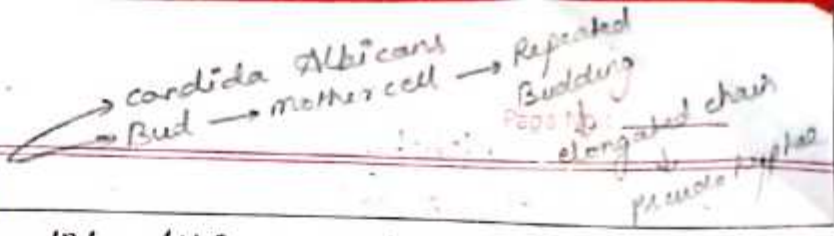 → candida Albicans
→ Bud → mother cell → Repeated
Budding
↓
elongated chain
↓
pseudo hyphae